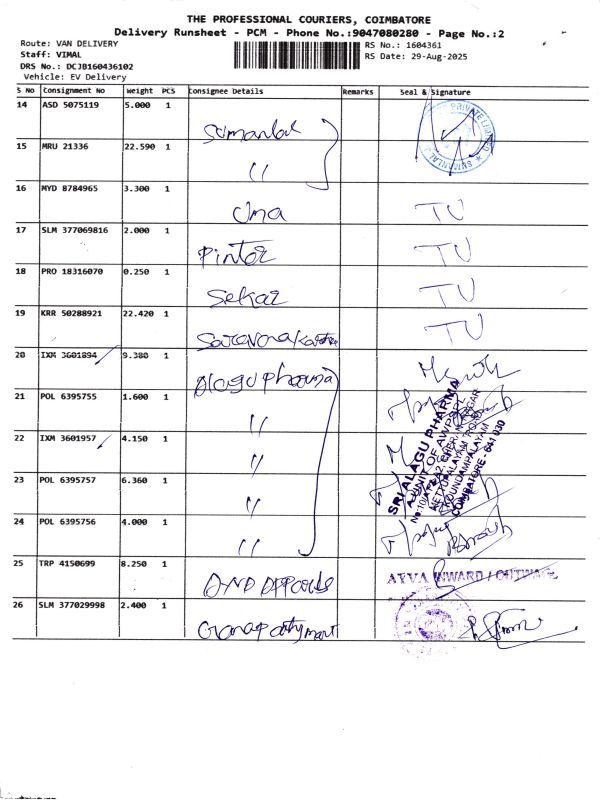 THE PROFESSIONAL COURIERS, COIMBATORE
Delivery Runsheet - PCM - Phone No.:9047080280 - Page No.:2
Route: VAN DELIVERY
RS No.: 1604361
Staff: VIMAL
RS Date: 29-Aug-2025
DRS No.: DCJB160436102
Vehicle: EV Delivery
S No Consignment No Weight PCS Consignee Details Remarks Seal & Signature
14 ASD 5075119 5.000 1
Sumanlal
PRIVATE LIMITED
SUMANLAL J
15 MRU 21336 22.590 1
"
16 MYD 8784965 3.300 1
Uma TU
17 SLM 377069816 2.000 1
Pintoz TU
18 PRO 18316070 0.250 1
Sekar TU
19 KRR 50288921 22.420 1
TU
20 IXM 3601894 9.380 1
Alagu pharma
21 POL 6395755 1.600 1
"
22 IXM 3601957 4.150 1
"
23 POL 6395757 6.360 1
"
24 POL 6395756 4.000 1
"
SRI ALAGU PHARMA
A UNIT OF AWPS PL
METTUPALAYAM ROAD
GOUNDAMPALAYAM
COIMBATORE - 641 030
25 TRP 4150699 8.250 1
AYYA INWARD / OUTWARD
26 SLM 377029998 2.400 1
Ganapathy mart